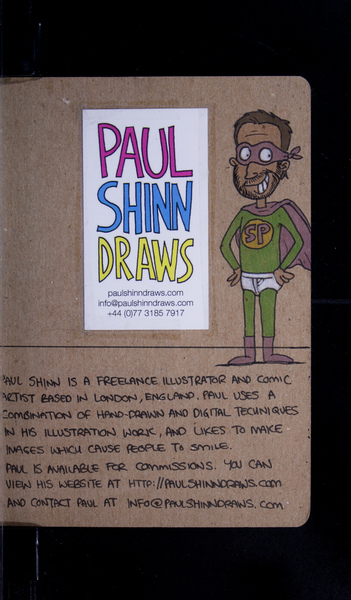 PAUL
SHINN
DRAWS
paulshinndraws.com
info@paulshinndraws.com
+44 (0)77 3185 7917
SP
PAUL SHINN IS A FREELANCE ILLUSTRATOR AND COMIC
ARTIST BASED IN LONDON, ENGLAND. PAUL USES A
COMBINATION OF HAND-DRAWN AND DIGITAL TECHNIQUES
IN HIS ILLUSTRATION WORK, AND LIKES TO MAKE
IMAGES WHICH CAUSE PEOPLE TO SMILE.
PAUL IS AVAILABLE FOR COMMISSIONS. YOU CAN
VIEW HIS WEBSITE AT HTTP://PAULSHINNDRAWS.COM
AND CONTACT PAUL AT INFO@PAULSHINNDRAWS.COM